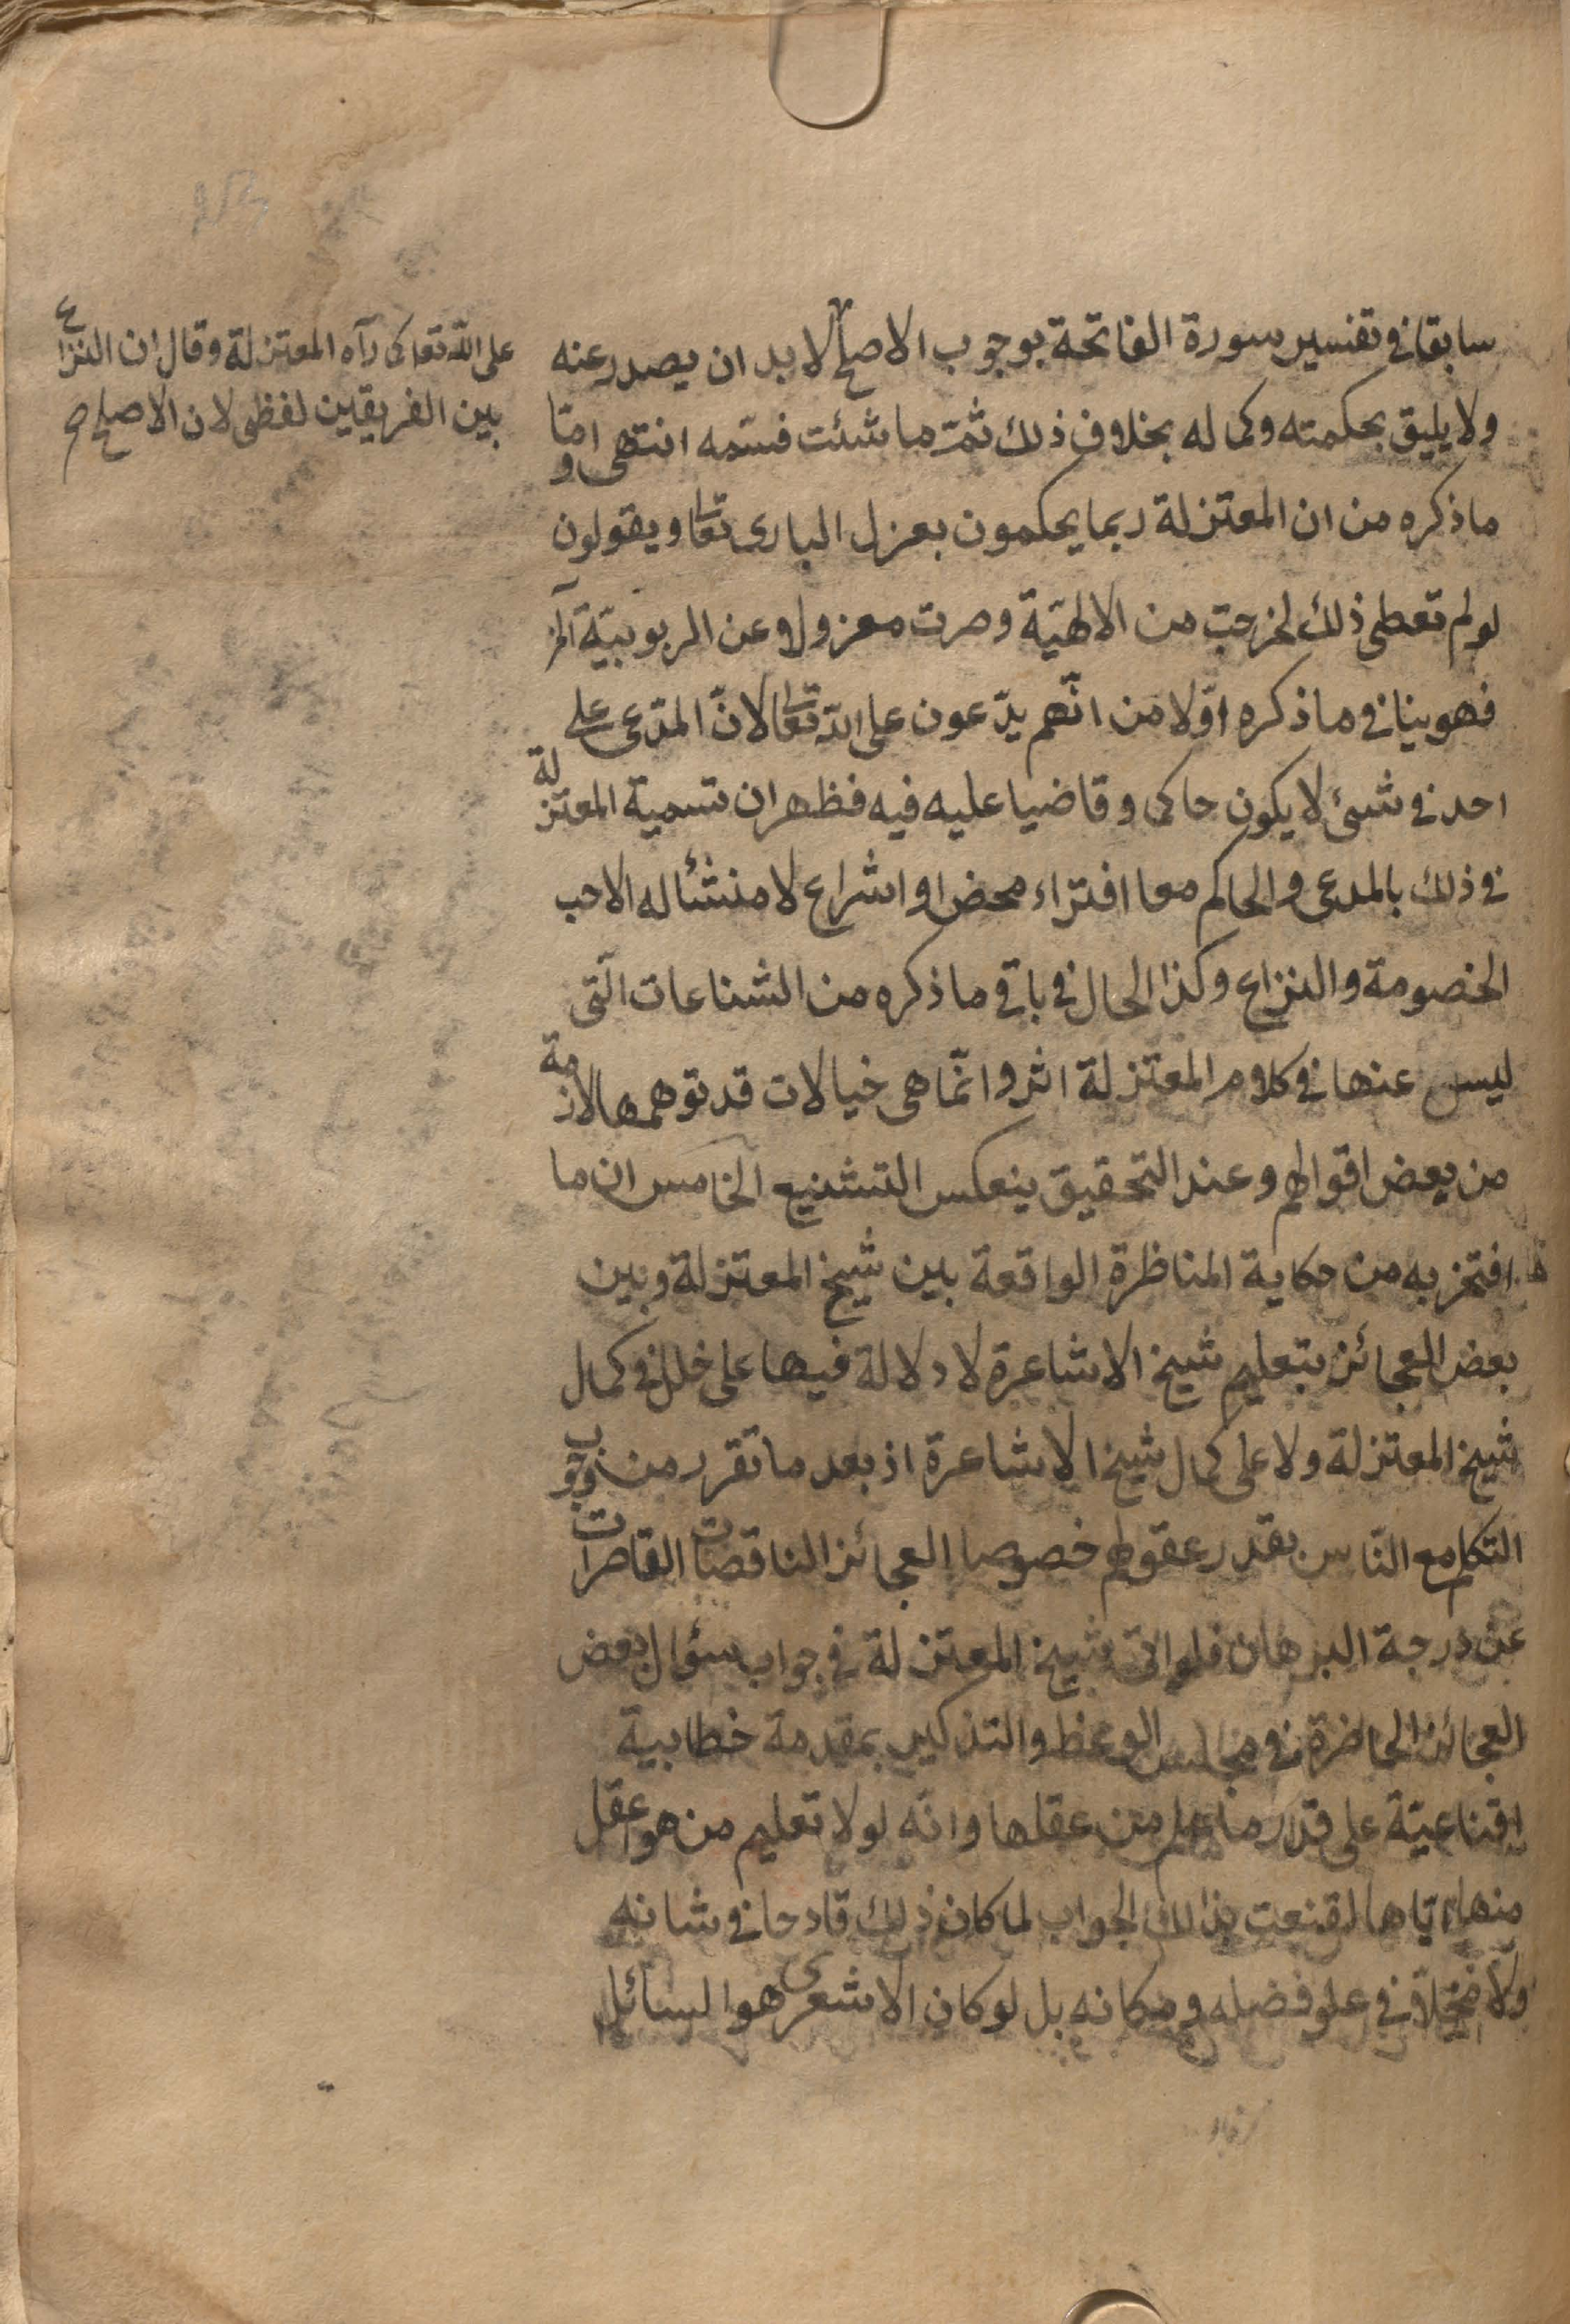 سابقا في تفسير سورة الفاتحة بوجوب الاصلح لا بد ان يصدر عنه
على الله تعالى كما رآه المعتزلة وقال ان النزاع
بين الفريقين لفظي لان الاصلح صح
ولا يليق بحكمته وكماله بخلاف ذلك ثمّ ما شئت فسّمه انتهى وامّا
ما ذكره من ان المعتزلة ربما يحكمون بعزل الباري تعالى ويقولون
لو لم تعطى ذلك لخرجت من الالهيّة وصرت معزولا عن الربوبيّة الخ
فهو ينافي ما ذكره اوّلا من انّهم يدّعون على الله تعالى لانّ المدّعى على
احد في شئ لا يكون حاكما وقاضيا عليه فيه فظهر ان تسمية المعتزلة
في ذلك بالمدعى والحاكم معا افتراء محض او اشراع لا منشئا له الا حب
الخصومة والنزاع وكذا الحال في باقي ما ذكره من الشناعات الّتى
ليس عنها في كلام المعتزلة اثر وانّما هى خيالات قد توهمها لازمة
من بعض اقوالهم وعند التحقيق ينعكس التشنيع الخامس ان ما
افتخر به من حكاية المناظرة الواقعة بين شيخ المعتزلة وبين
بعض العجائز بتعليم شيخ الاشاعرة لا دلالة فيها على خلل في كمال
شيخ المعتزلة ولا على كمال شيخ الاشاعرة اذ بعد ما تقرر من وجوب
التكلم مع النّاس بقدر عقولهم خصوصا العجائز الناقصات القاصرات
عن درجة البرهان فلو اتى شيخ المعتزلة في جواب سؤال بعض
العجائز الحاضرة في مجلس الوعظ والتذكير بمقدمة خطابية
اقناعيّة على قدر ما علم من عقلها وانّه لولا تعليم من هو اعقل
منها ايّاها لقنعت بذلك الجواب لما كان ذلك قادحا في شانه
ولا مخلّا في علو فضله ومكانه بل لو كان الاشعرى هو السائل